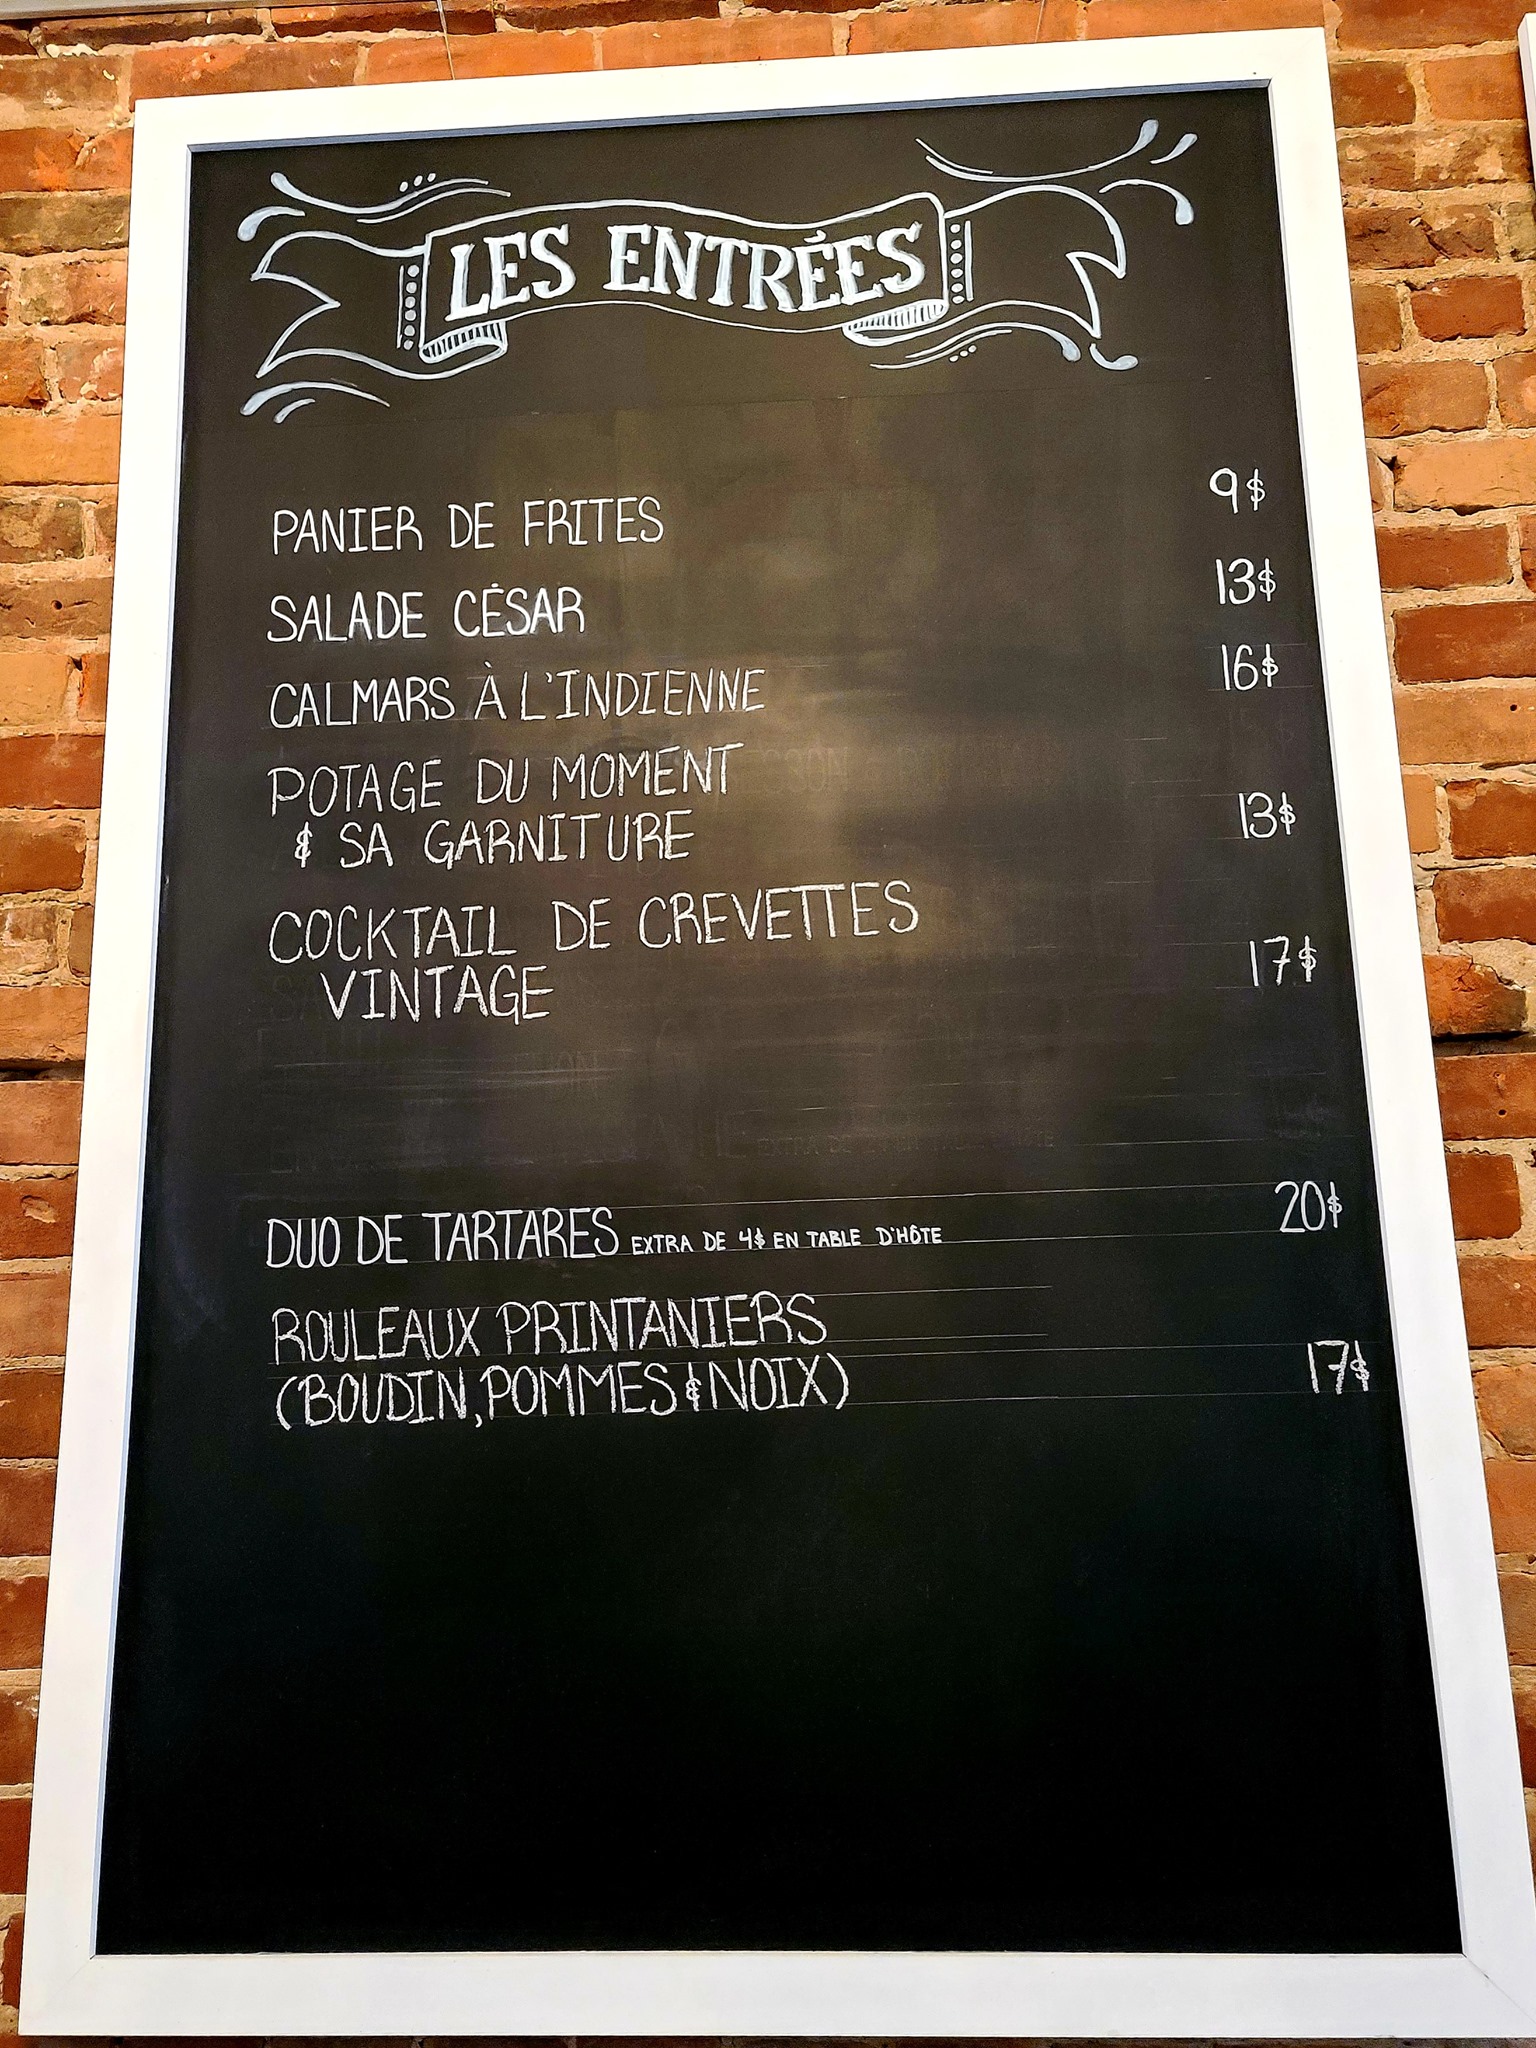 LES ENTRÉES
PANIER DE FRITES 9$
SALADE CÉSAR 13$
CALMARS À L'INDIENNE 16$
POTAGE DU MOMENT
& SA GARNITURE 13$
COCKTAIL DE CREVETTES
VINTAGE 17$
DUO DE TARTARES EXTRA DE 4$ EN TABLE D'HÔTE 20$
ROULEAUX PRINTANIERS
(BOUDIN, POMMES & NOIX) 17$